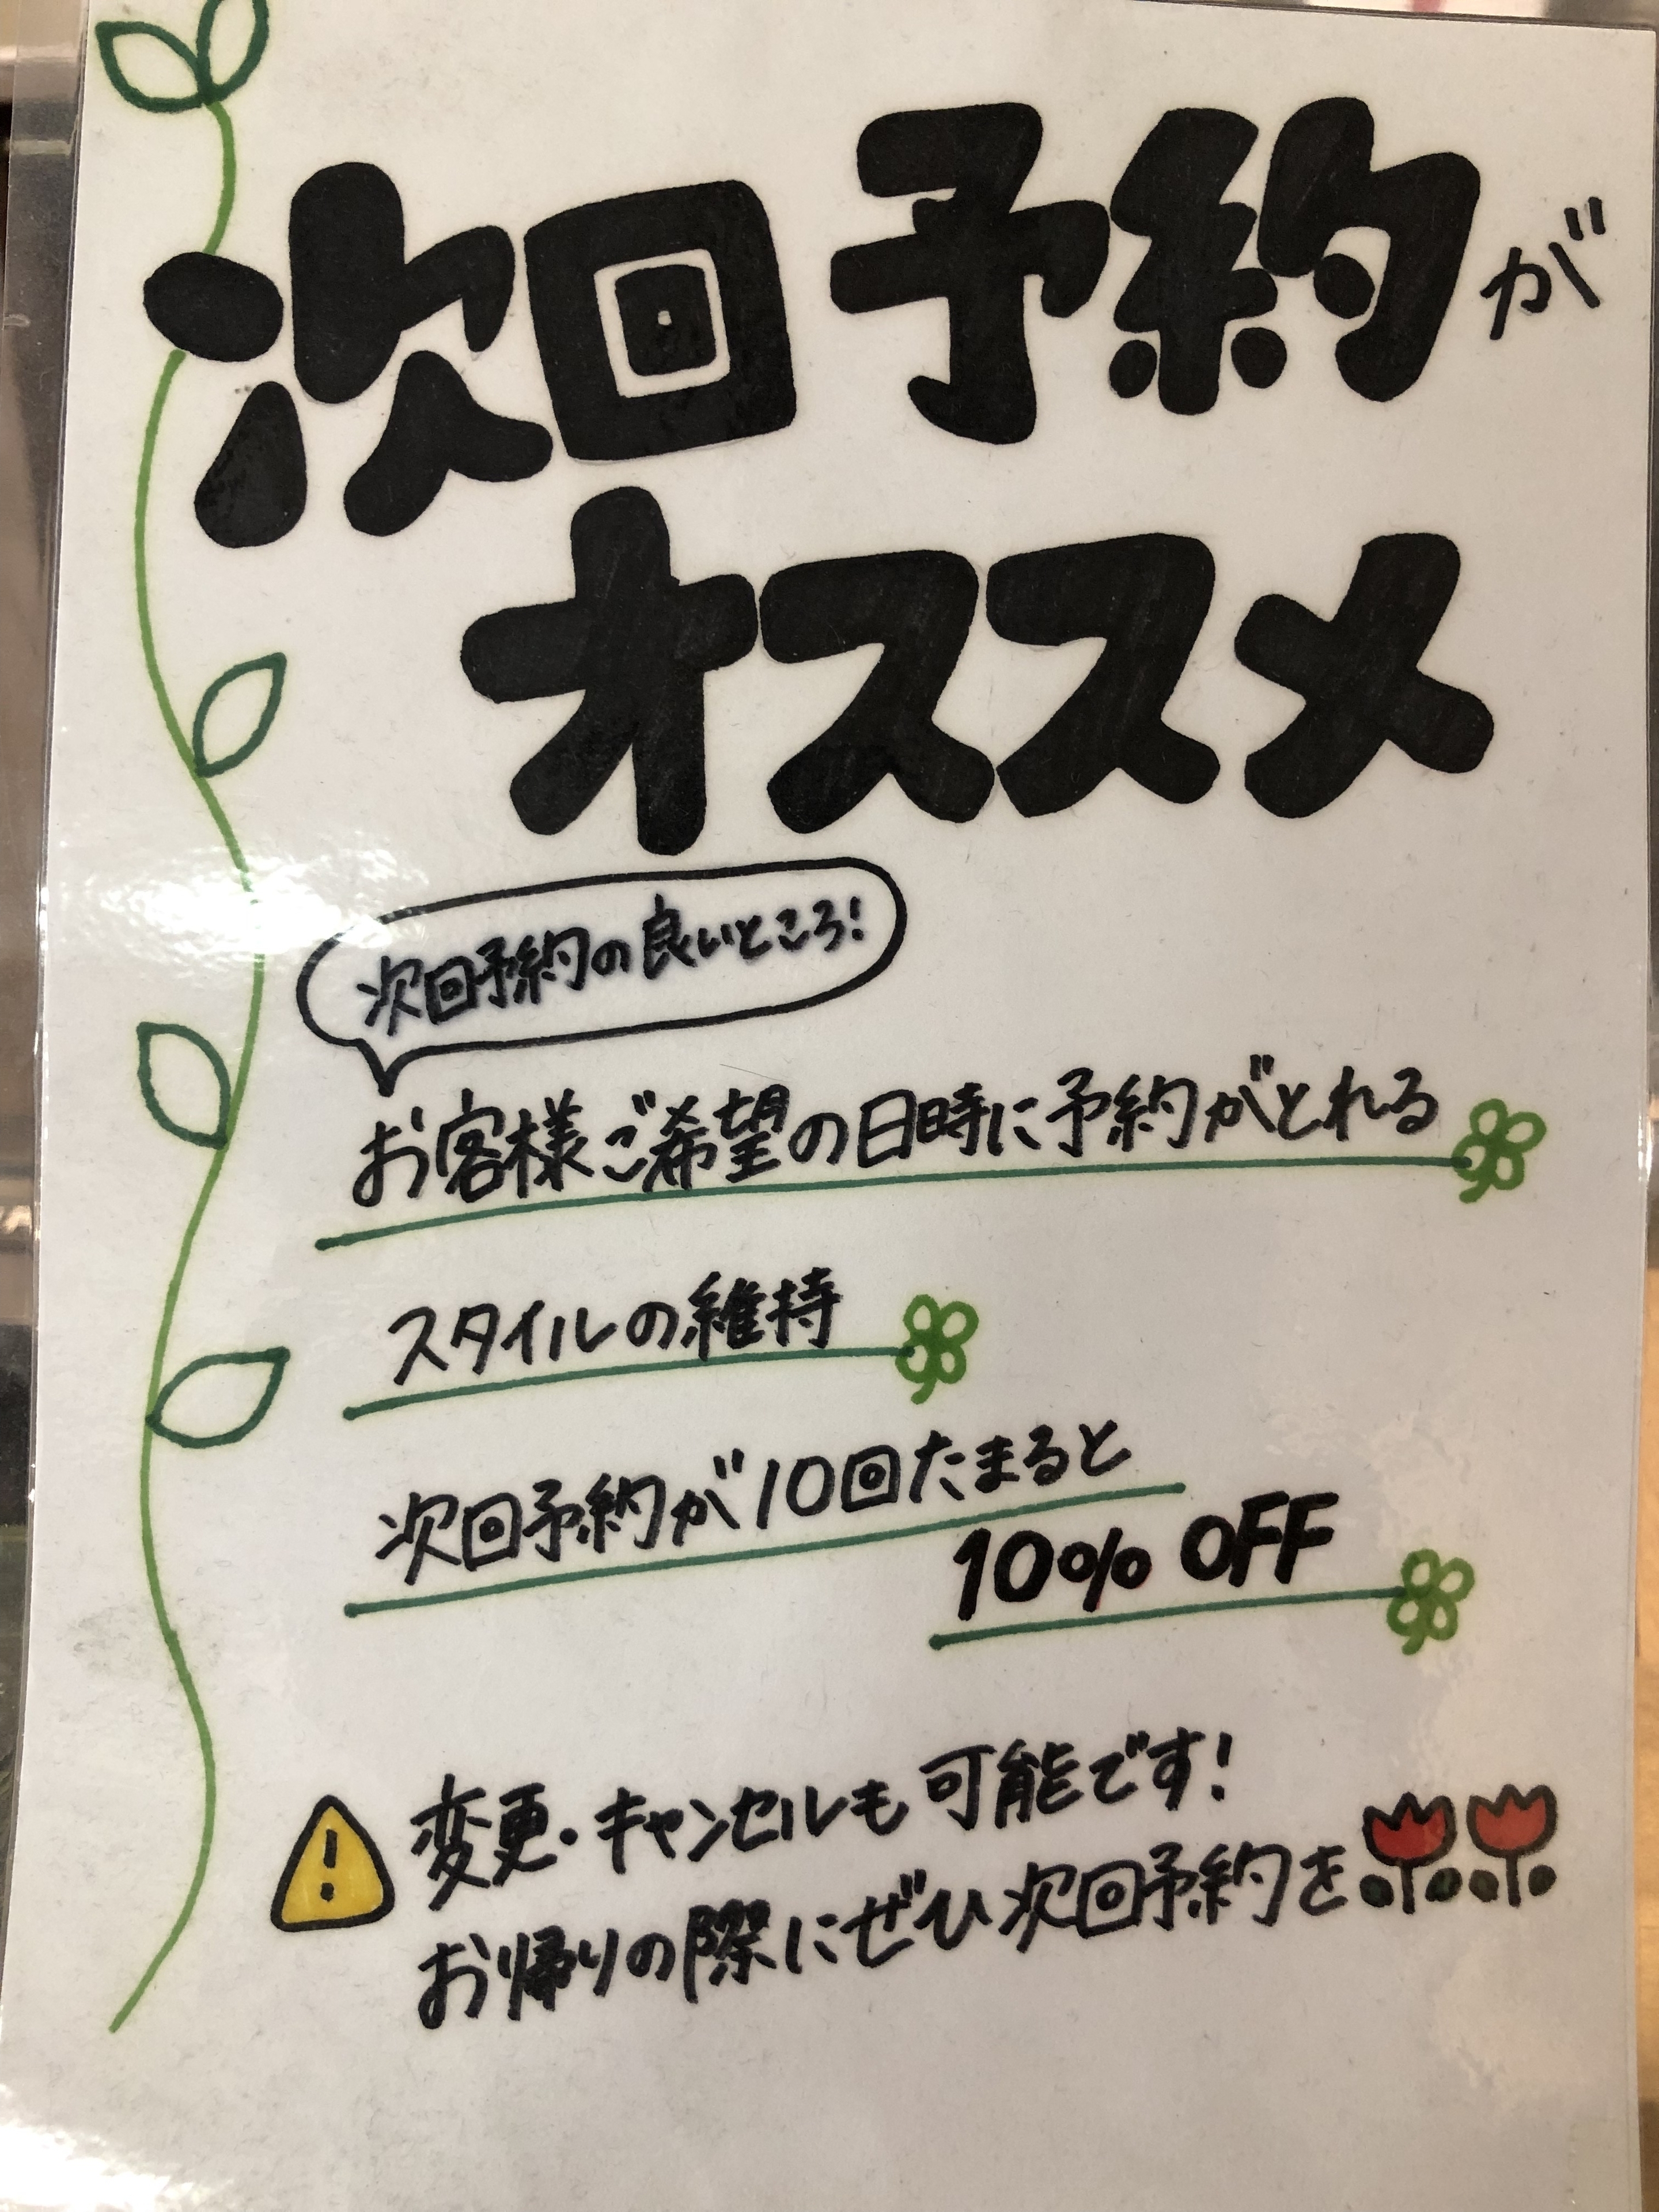 次回予約が
オススメ
次回予約の良いところ!
お客様ご希望の日時に予約がとれる
スタイルの維持
次回予約が10回たまると
10% OFF
変更・キャンセルも可能です!
お帰りの際にぜひ次回予約を